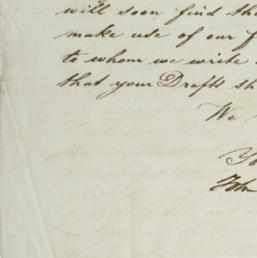 will soon find th
make use of our f
to whom we write
that your Drafts sh
We
Yo
John